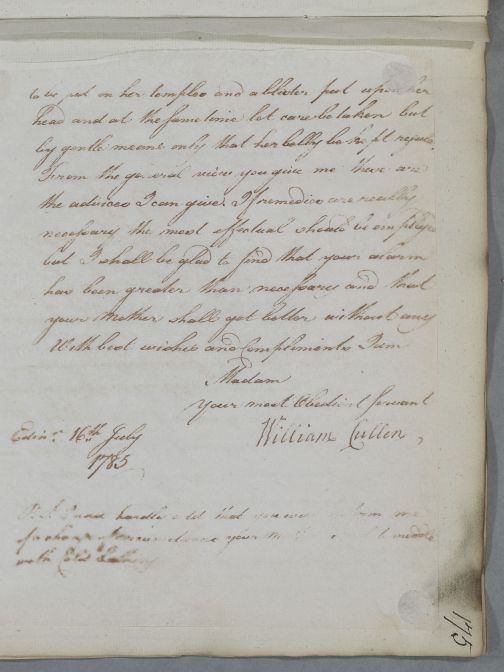 to be put on her temples and a blister put upon her
head and at the same time let care be taken but
by gentle means only that her belly be kept regular
From the general view you give me these are
the advices I can give. If remedies are really
necessary the most effectual should be employed
but I shall be glad to find that your alarm
has been greater than necessary and that
your Mother shall get better without any
With best wishes and Compliments I am
Madam
Your most Obedient servant
William Cullen
Edinr. 16th July
1785
that you will inform me
your
with Cold Bathing
145